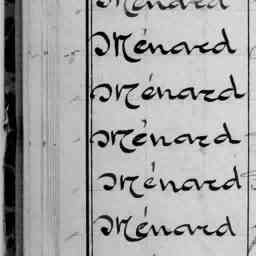 Ménard
Ménard
Ménard
Ménard
Ménard
Ménard